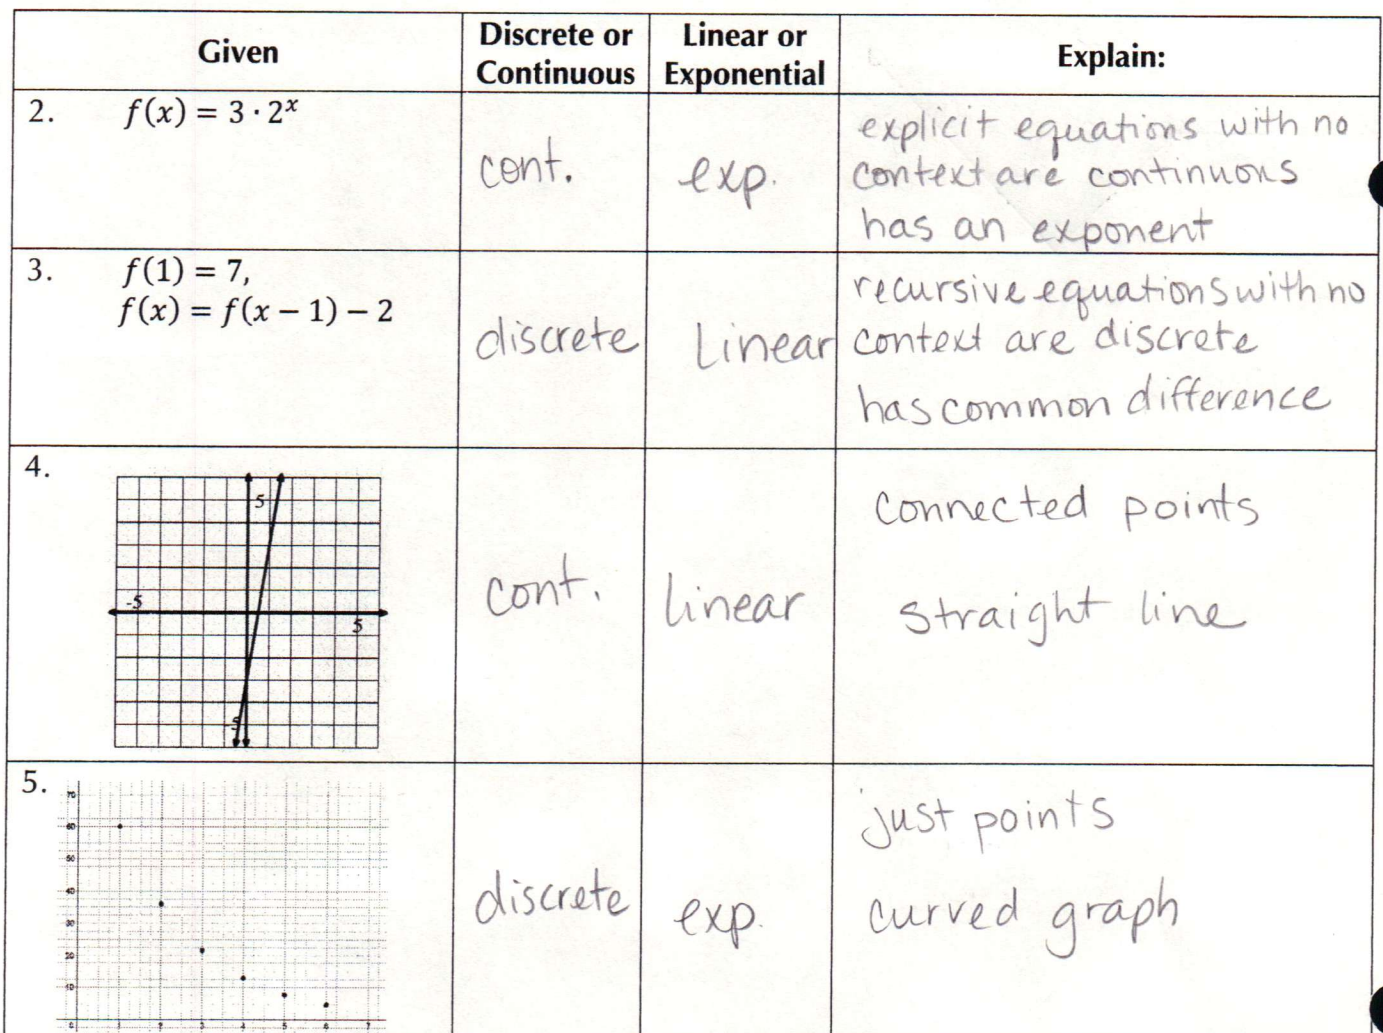 Given
Discrete or
Continuous
Linear or
Exponential
Explain:
2.
f(x) = 3 · 2ˣ
cont.
exp.
explicit equations with no
context are continuous
has an exponent
3.
f(1) = 7,
f(x) = f(x − 1) − 2
discrete
Linear
recursive equations with no
context are discrete
has common difference
4.
5
-5
5
cont.
linear
connected points
straight line
5.
70
60
50
40
30
20
10
0 1 2 3 4 5 6 7
discrete
exp.
just points
curved graph